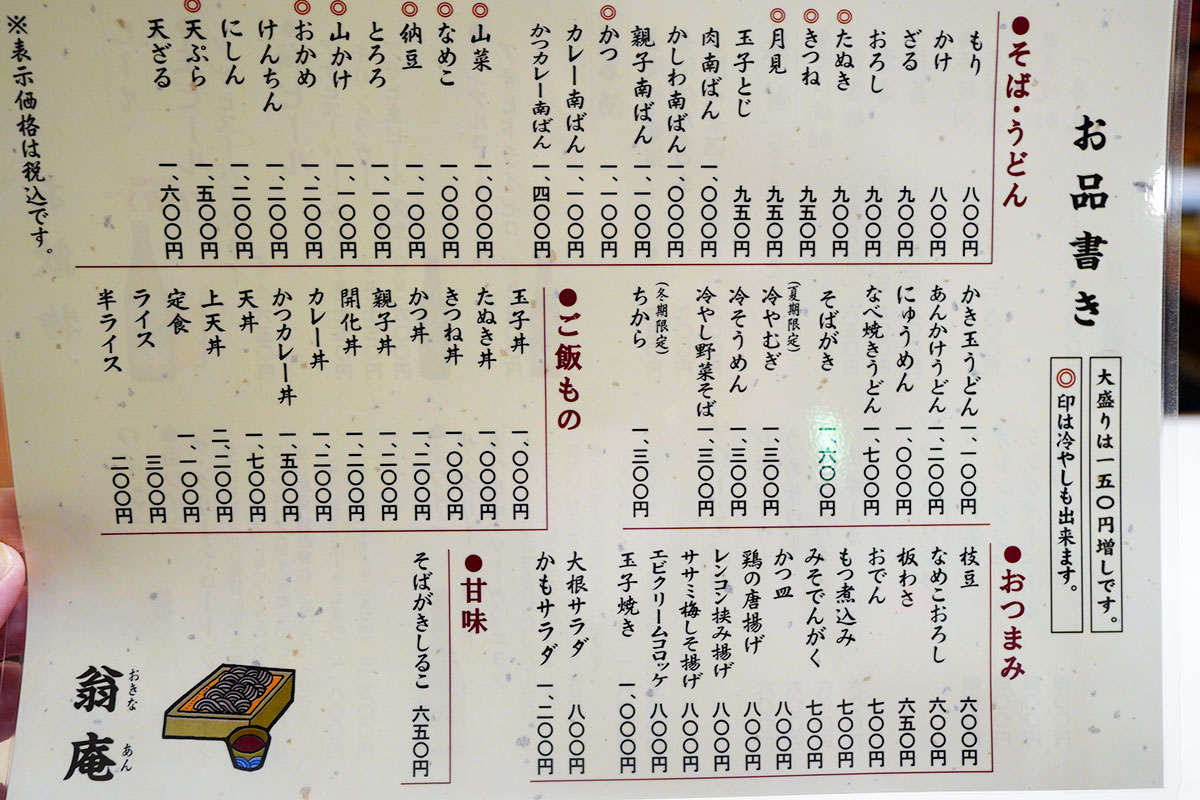 お品書き
大盛りは一五〇円増しです。
◎印は冷やしも出来ます。
●そば・うどん
もり 八〇〇円
かけ 八〇〇円
ざる 九〇〇円
おろし 九〇〇円
◎たぬき 九〇〇円
◎きつね 九五〇円
◎月見 九五〇円
玉子とじ 九五〇円
肉南ばん 一、〇〇〇円
かしわ南ばん 一、〇〇〇円
親子南ばん 一、一〇〇円
◎かつ 一、一〇〇円
カレー南ばん 一、一〇〇円
かつカレー南ばん 一、四〇〇円
◎山菜 一、〇〇〇円
◎なめこ 一、〇〇〇円
◎納豆 一、一〇〇円
とろろ 一、一〇〇円
◎山かけ 一、一〇〇円
◎おかめ 一、二〇〇円
けんちん 一、二〇〇円
にしん 一、二〇〇円
◎天ぷら 一、五〇〇円
天ざる 一、六〇〇円
かき玉うどん 一、一〇〇円
あんかけうどん 一、二〇〇円
にゅうめん 一、〇〇〇円
なべ焼きうどん 一、七〇〇円
そばがき 一、六〇〇円
(夏期限定)
冷やむぎ 一、三〇〇円
冷そうめん 一、三〇〇円
冷やし野菜そば 一、三〇〇円
(冬期限定)
ちから 一、三〇〇円
●ご飯もの
玉子丼 一、〇〇〇円
たぬき丼 一、〇〇〇円
きつね丼 一、〇〇〇円
かつ丼 一、二〇〇円
親子丼 一、二〇〇円
開化丼 一、二〇〇円
カレー丼 一、二〇〇円
かつカレー丼 一、五〇〇円
天丼 一、七〇〇円
上天丼 二、二〇〇円
定食 一、一〇〇円
ライス 三〇〇円
半ライス 二〇〇円
●おつまみ
枝豆 六〇〇円
なめこおろし 六〇〇円
板わさ 六五〇円
おでん 七〇〇円
もつ煮込み 七〇〇円
みそでんがく 七〇〇円
かつ皿 八〇〇円
鶏の唐揚げ 八〇〇円
レンコン挟み揚げ 八〇〇円
ササミ梅しそ揚げ 八〇〇円
エビクリームコロッケ 八〇〇円
玉子焼き 一、〇〇〇円
大根サラダ 八〇〇円
かもサラダ 一、二〇〇円
●甘味
そばがきしるこ 六五〇円
翁庵
おきな あん
※表示価格は税込です。